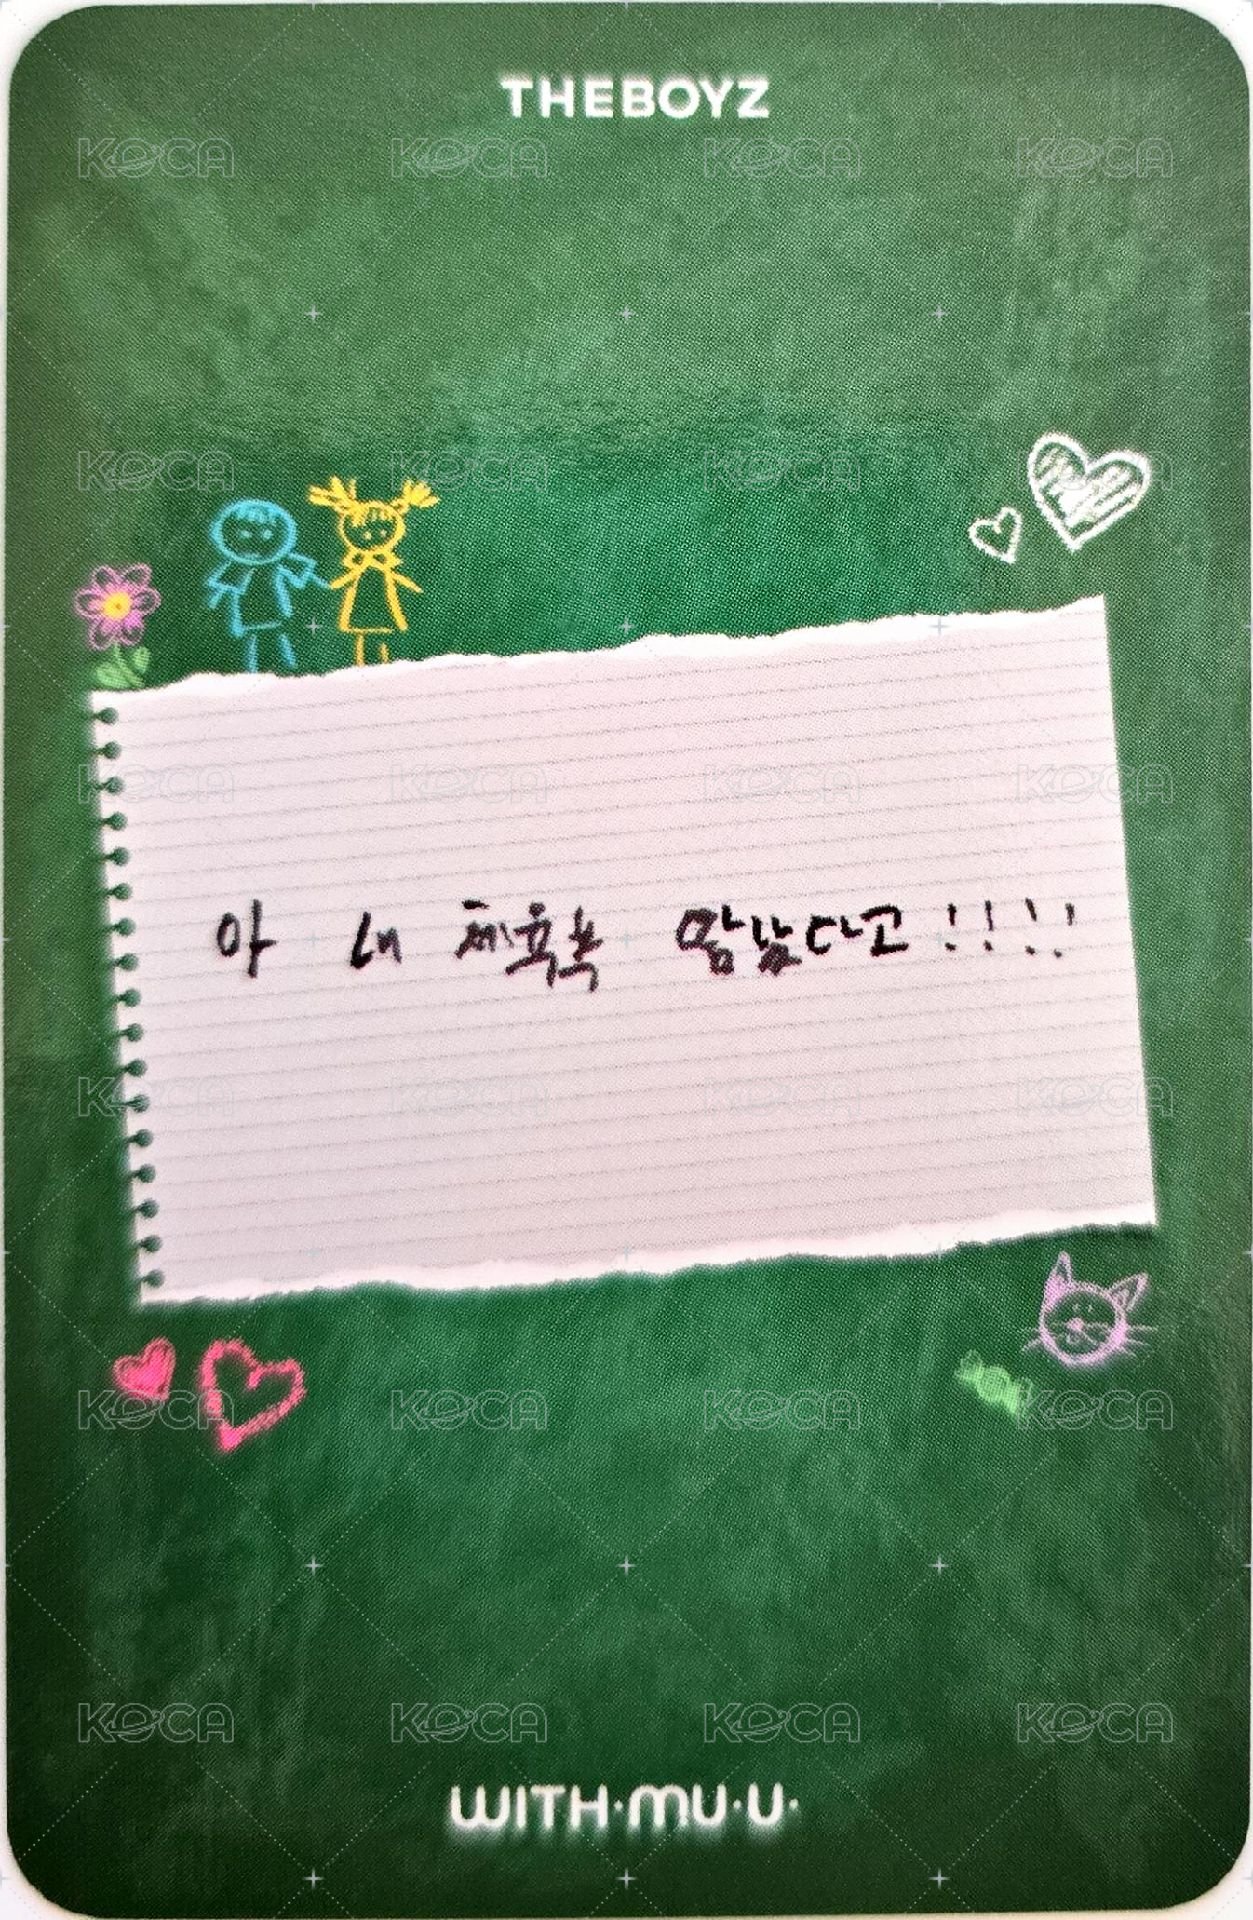 THEBOYZ
KOCA KOCA KOCA KOCA
KOCA KOCA KOCA
KOCA KOCA KOCA KOCA
아 내 체육복 !!!!
KOCA KOCA KOCA KOCA
KOCA KOCA KOCA KOCA
KOCA KOCA KOCA KOCA
WITH·MU·U·